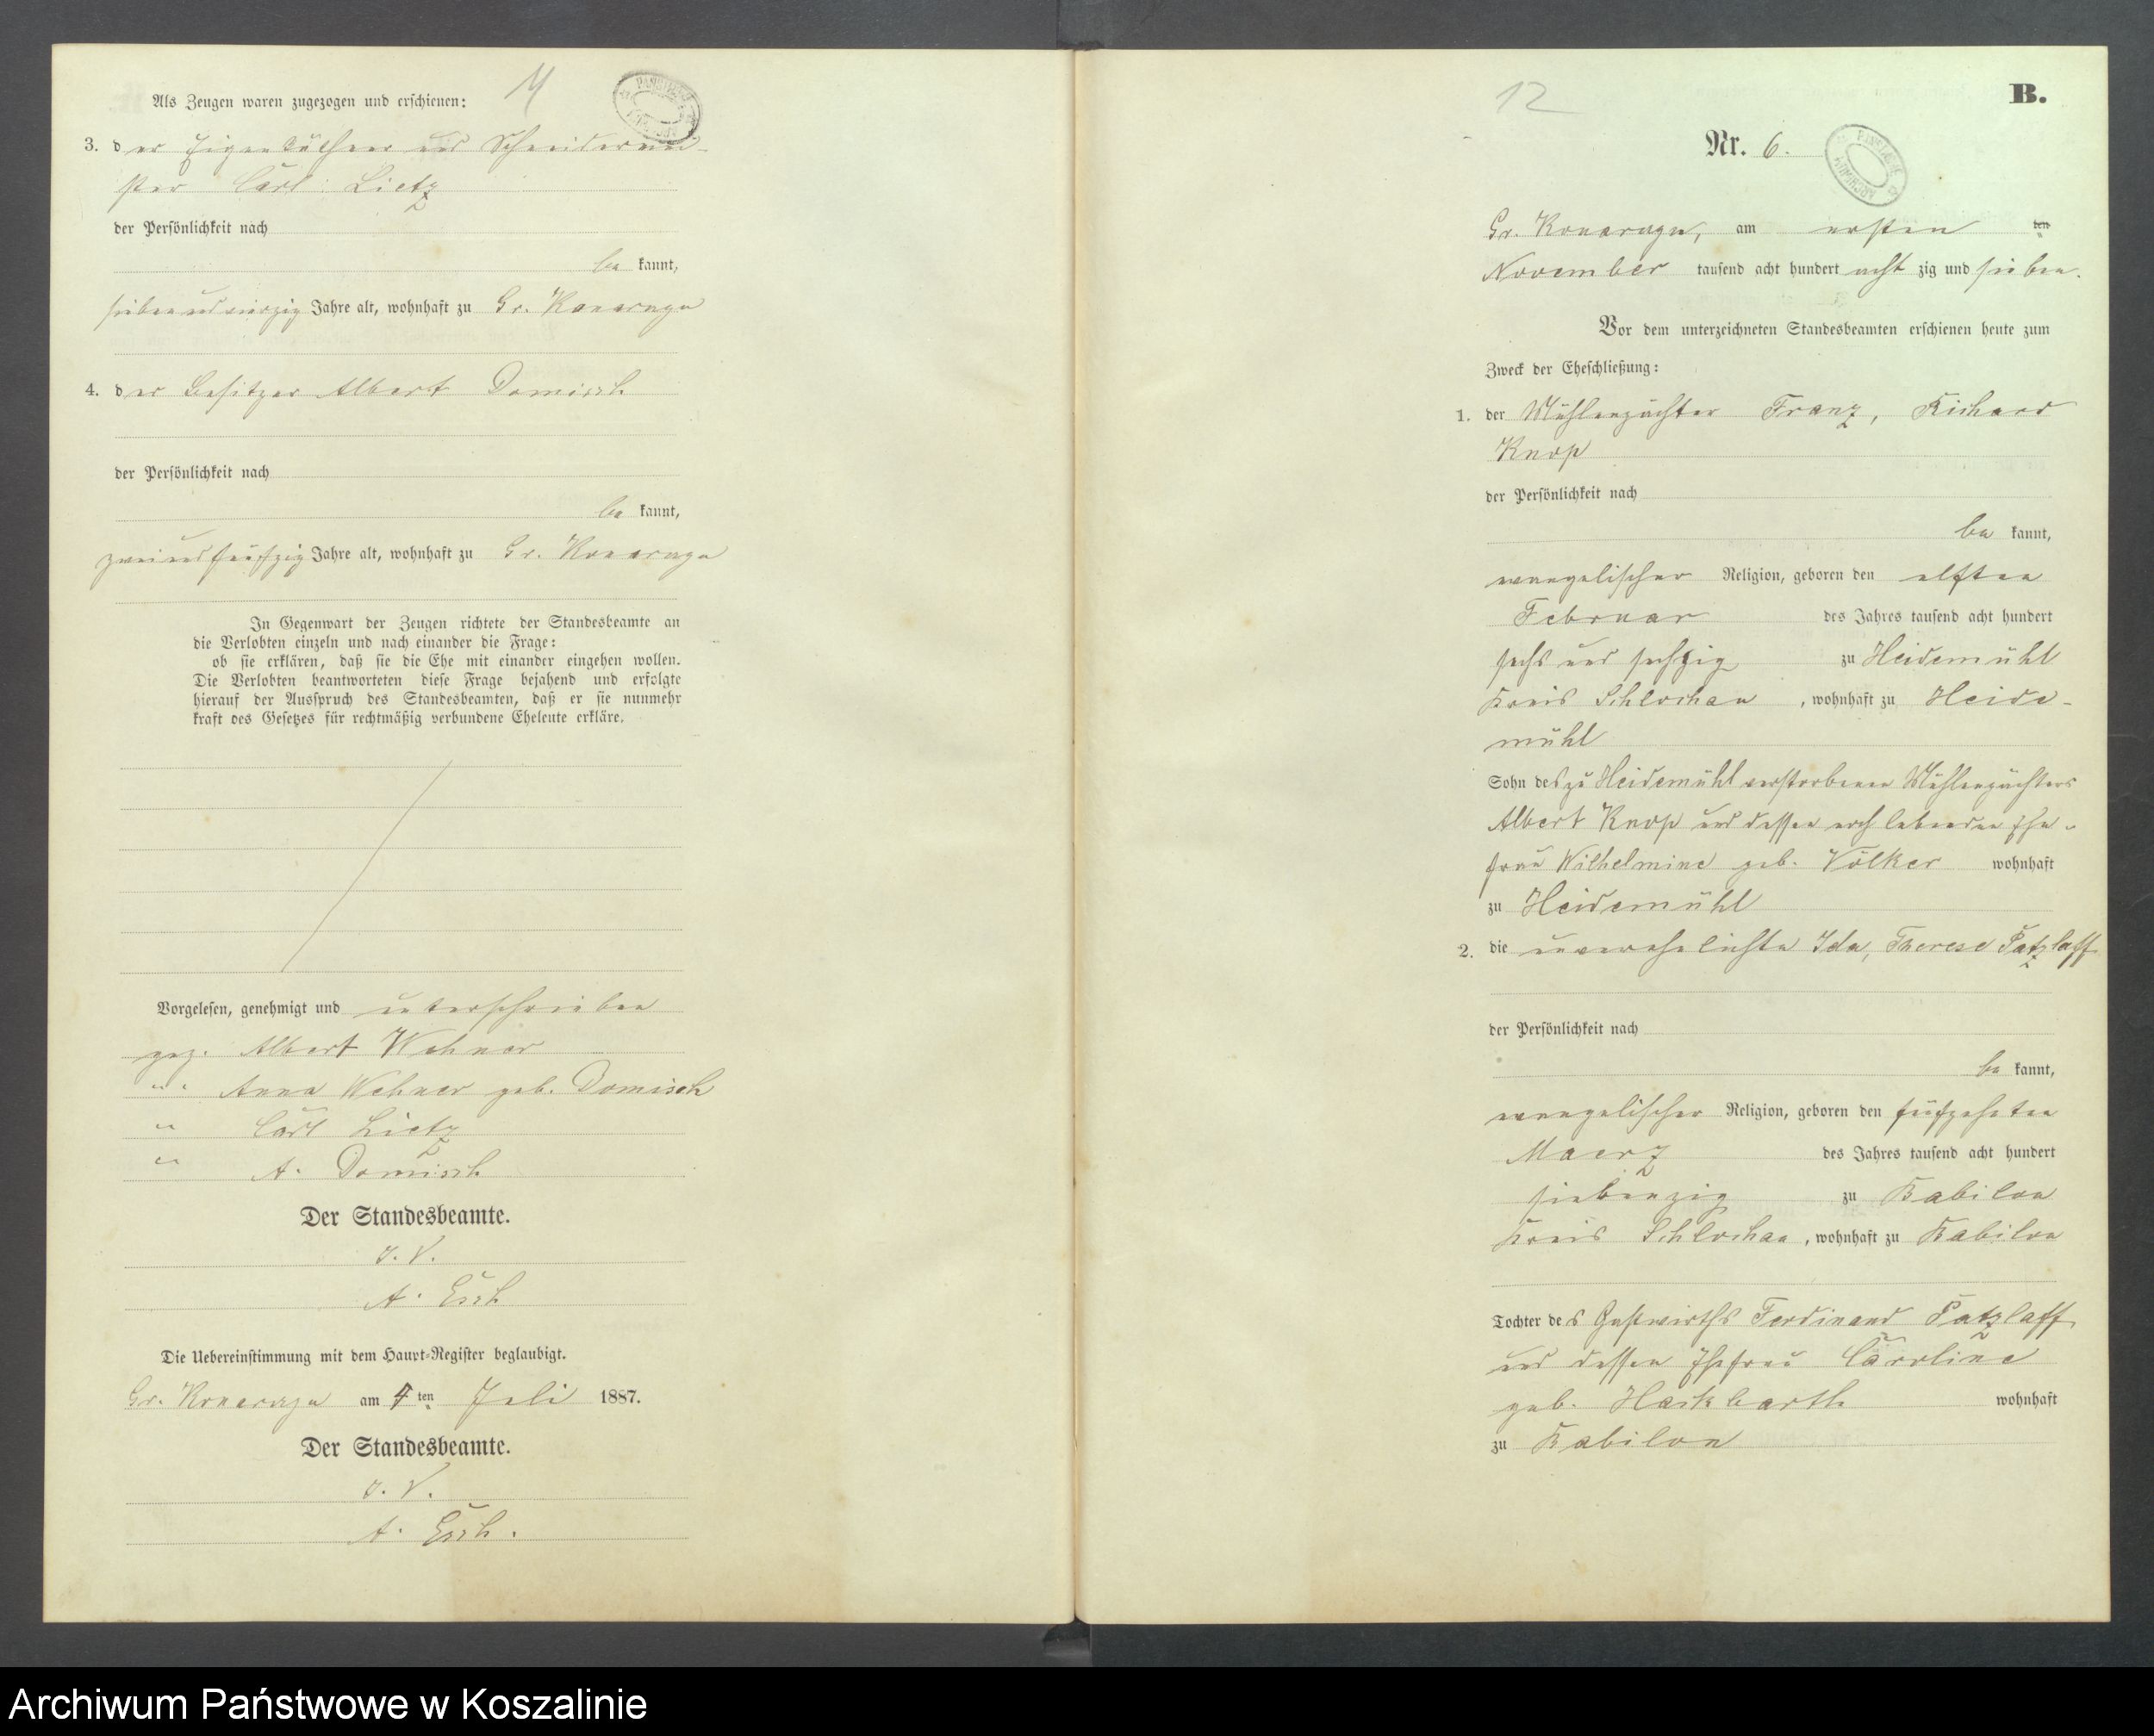 11
Als Zeugen waren zugezogen und erschienen:
3. der Eigenkäthner und Schneidermei-
ster Carl Lietz
der Persönlichkeit nach
be kannt,
siebenundvierzig Jahre alt, wohnhaft zu Gr. Konarczyn
4. der Besitzer Albert Domisch
der Persönlichkeit nach
be kannt,
zweiundfünfzig Jahre alt, wohnhaft zu Gr. Konarczyn
In Gegenwart der Zeugen richtete der Standesbeamte an
die Verlobten einzeln und nach einander die Frage:
ob sie erklären, daß sie die Ehe mit einander eingehen wollen.
Die Verlobten beantworteten diese Frage bejahend und erfolgte
hierauf der Ausspruch des Standesbeamten, daß er sie nunmehr
kraft des Gesetzes für rechtmäßig verbundene Eheleute erkläre.
Vorgelesen, genehmigt und unterschrieben
gez. Albert Wehner
" Anna Wehner geb. Domisch
" Carl Lietz
" A. Domisch
Der Standesbeamte.
J. V.
A. Esch
Die Uebereinstimmung mit dem Haupt-Register beglaubigt.
am 4 ten Juli 1887.
Der Standesbeamte.
J. V.
A. Esch.
12
B.
Nr. 6.
am ersten ten
November tausend acht hundert acht zig und sieben.
Vor dem unterzeichneten Standesbeamten erschienen heute zum
Zweck der Eheschließung:
1. der Mühlenpächter Franz, Richard
Knop
der Persönlichkeit nach
be kannt,
evangelischer Religion, geboren den elften
Februar des Jahres tausend acht hundert
sechs und sechzig zu Heidemühl
Kreis Schlochau, wohnhaft zu Heide-
mühl
Sohn des zu Heidemühl verstorbenen Mühlenpächters
Albert Knop und dessen noch lebenden Ehe-
frau Wilhelmine geb. Völker wohnhaft
zu Heidemühl
2. die unverehelichte Ida, Therese Patzlaff
der Persönlichkeit nach
be kannt,
evangelischer Religion, geboren den fünfzehnten
Maerz des Jahres tausend acht hundert
siebenzig zu Babilon
Kreis Schlochau, wohnhaft zu Babilon
Tochter des Gastwirths Ferdinand Patzlaff
und dessen Ehefrau Caroline
geb. Hackbarth wohnhaft
zu Babilon
Archiwum Państwowe w Koszalinie